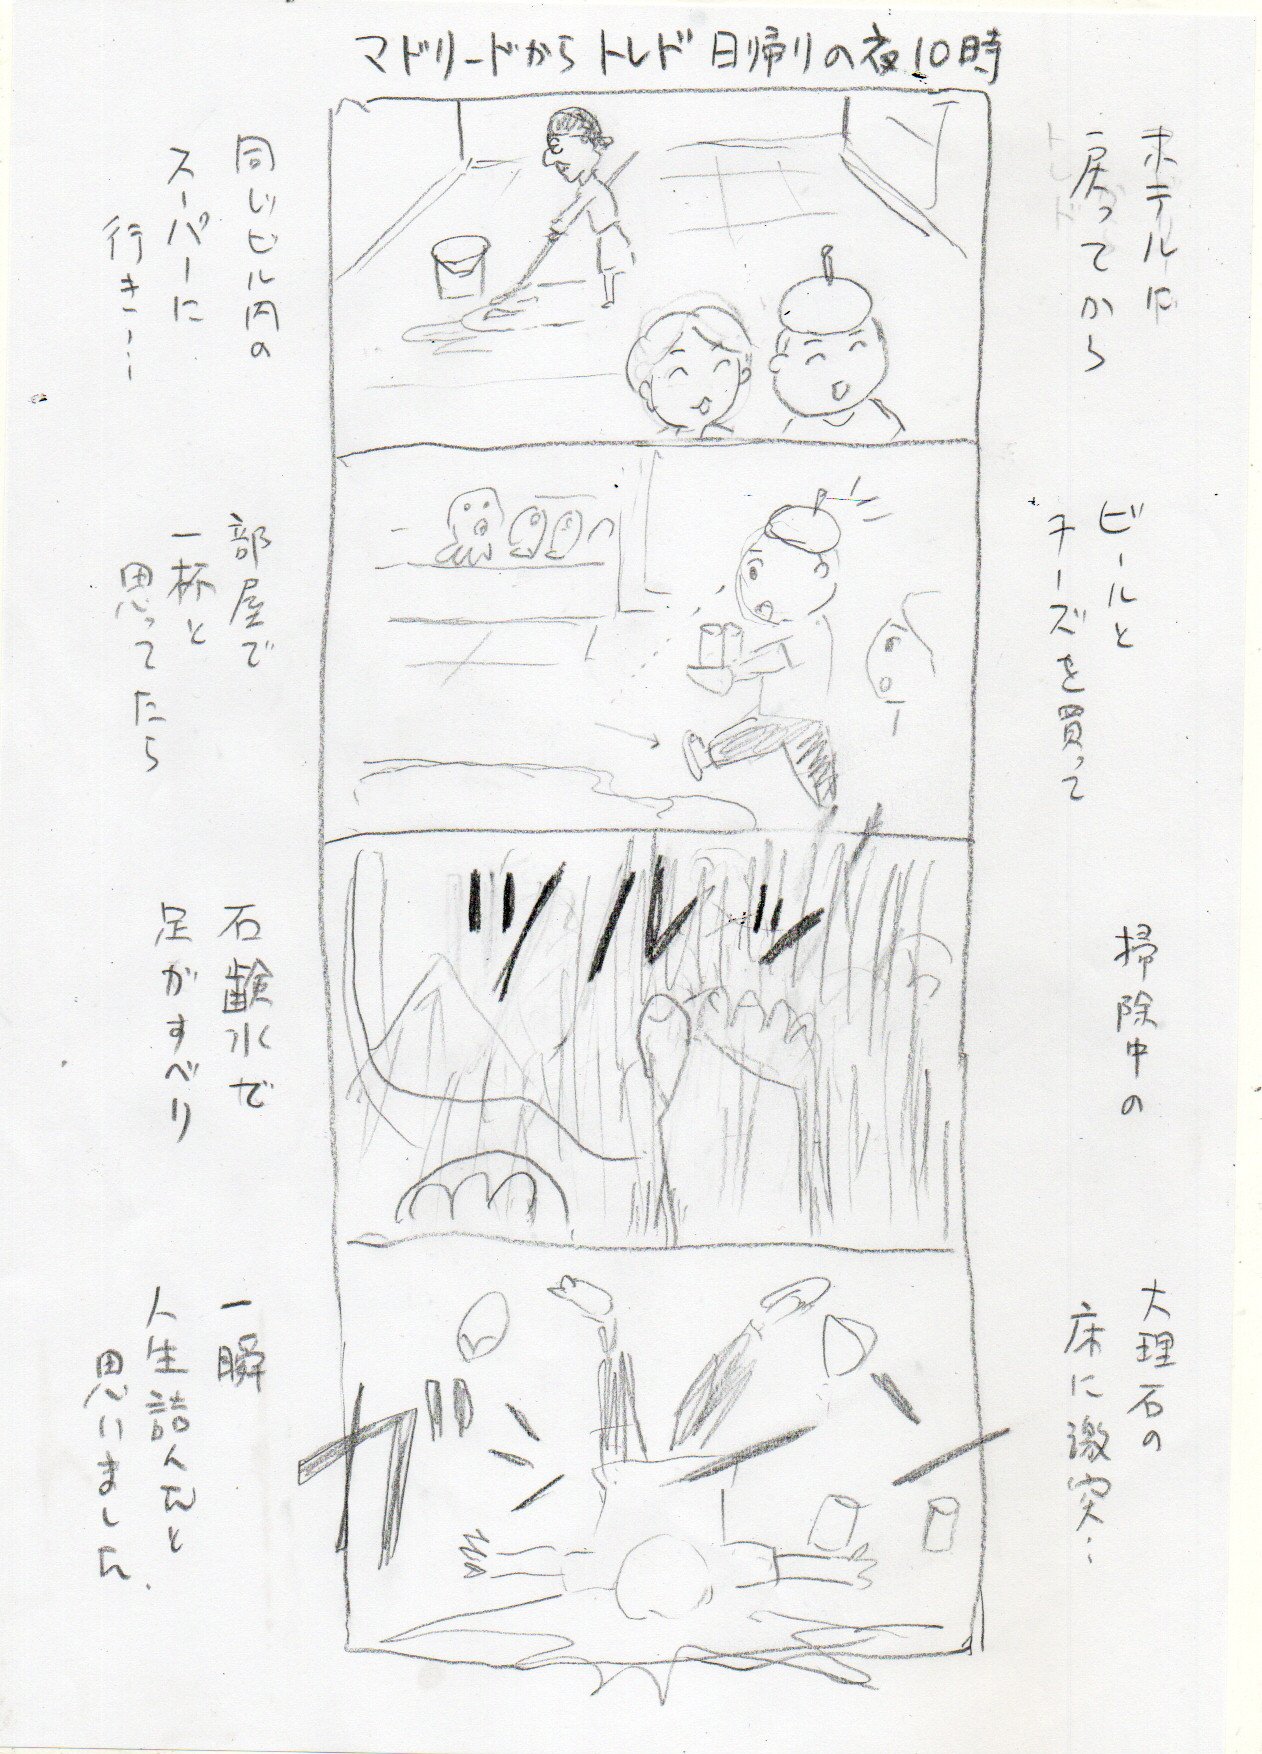 マドリードからトレド日帰りの夜10時
ホテルに
戻ってから
同じビル内の
スーパーに
行き…
ビールと
チーズを買って
部屋で
一杯と
思ってたら
ツルッ
掃除中の
石鹸水で
足がすべり
大理石の
床に激突…
一瞬
人生詰んだと
思いました.